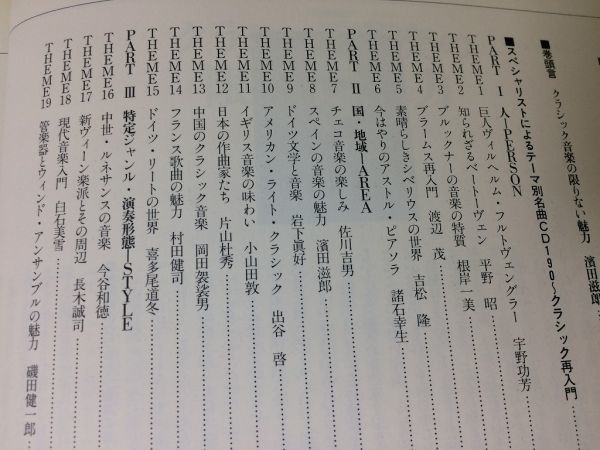 ■巻頭言 クラシック音楽の限りない魅力 濱田滋郎
■スペシャリストによるテーマ別名曲CD190〜クラシック再入門
PART Ⅰ 人—PERSON
THEME1 巨人ヴィルヘルム・フルトヴェングラー 宇野功芳
THEME2 知られざるベートーヴェン 平野 昭
THEME3 ブルックナーの音楽の特質 根岸一美
THEME4 ブラームス再入門 渡辺 茂
THEME5 素晴らしきシベリウスの世界 吉松 隆
THEME6 今はやりのアストル・ピアソラ 諸石幸生
PART Ⅱ 国・地域—AREA
THEME7 チェコ音楽の楽しみ 佐川吉男
THEME8 スペインの音楽の魅力 濱田滋郎
THEME9 ドイツ文学と音楽 岩下眞好
THEME10 アメリカン・ライト・クラシック 出谷 啓
THEME11 イギリス音楽の味わい 小山田敦
THEME12 日本の作曲家たち 片山杜秀
THEME13 中国のクラシック音楽 岡田袈裟男
THEME14 フランス歌曲の魅力 村田健司
THEME15 ドイツ・リートの世界 喜多尾道冬
PART Ⅲ 特定ジャンル・演奏形態—STYLE
THEME16 中世・ルネサンスの音楽 今谷和徳
THEME17 新ヴィーン楽派とその周辺 長木誠司
THEME18 現代音楽入門 白石美雪
THEME19 管楽器とウィンド・アンサンブルの魅力 磯田健一郎